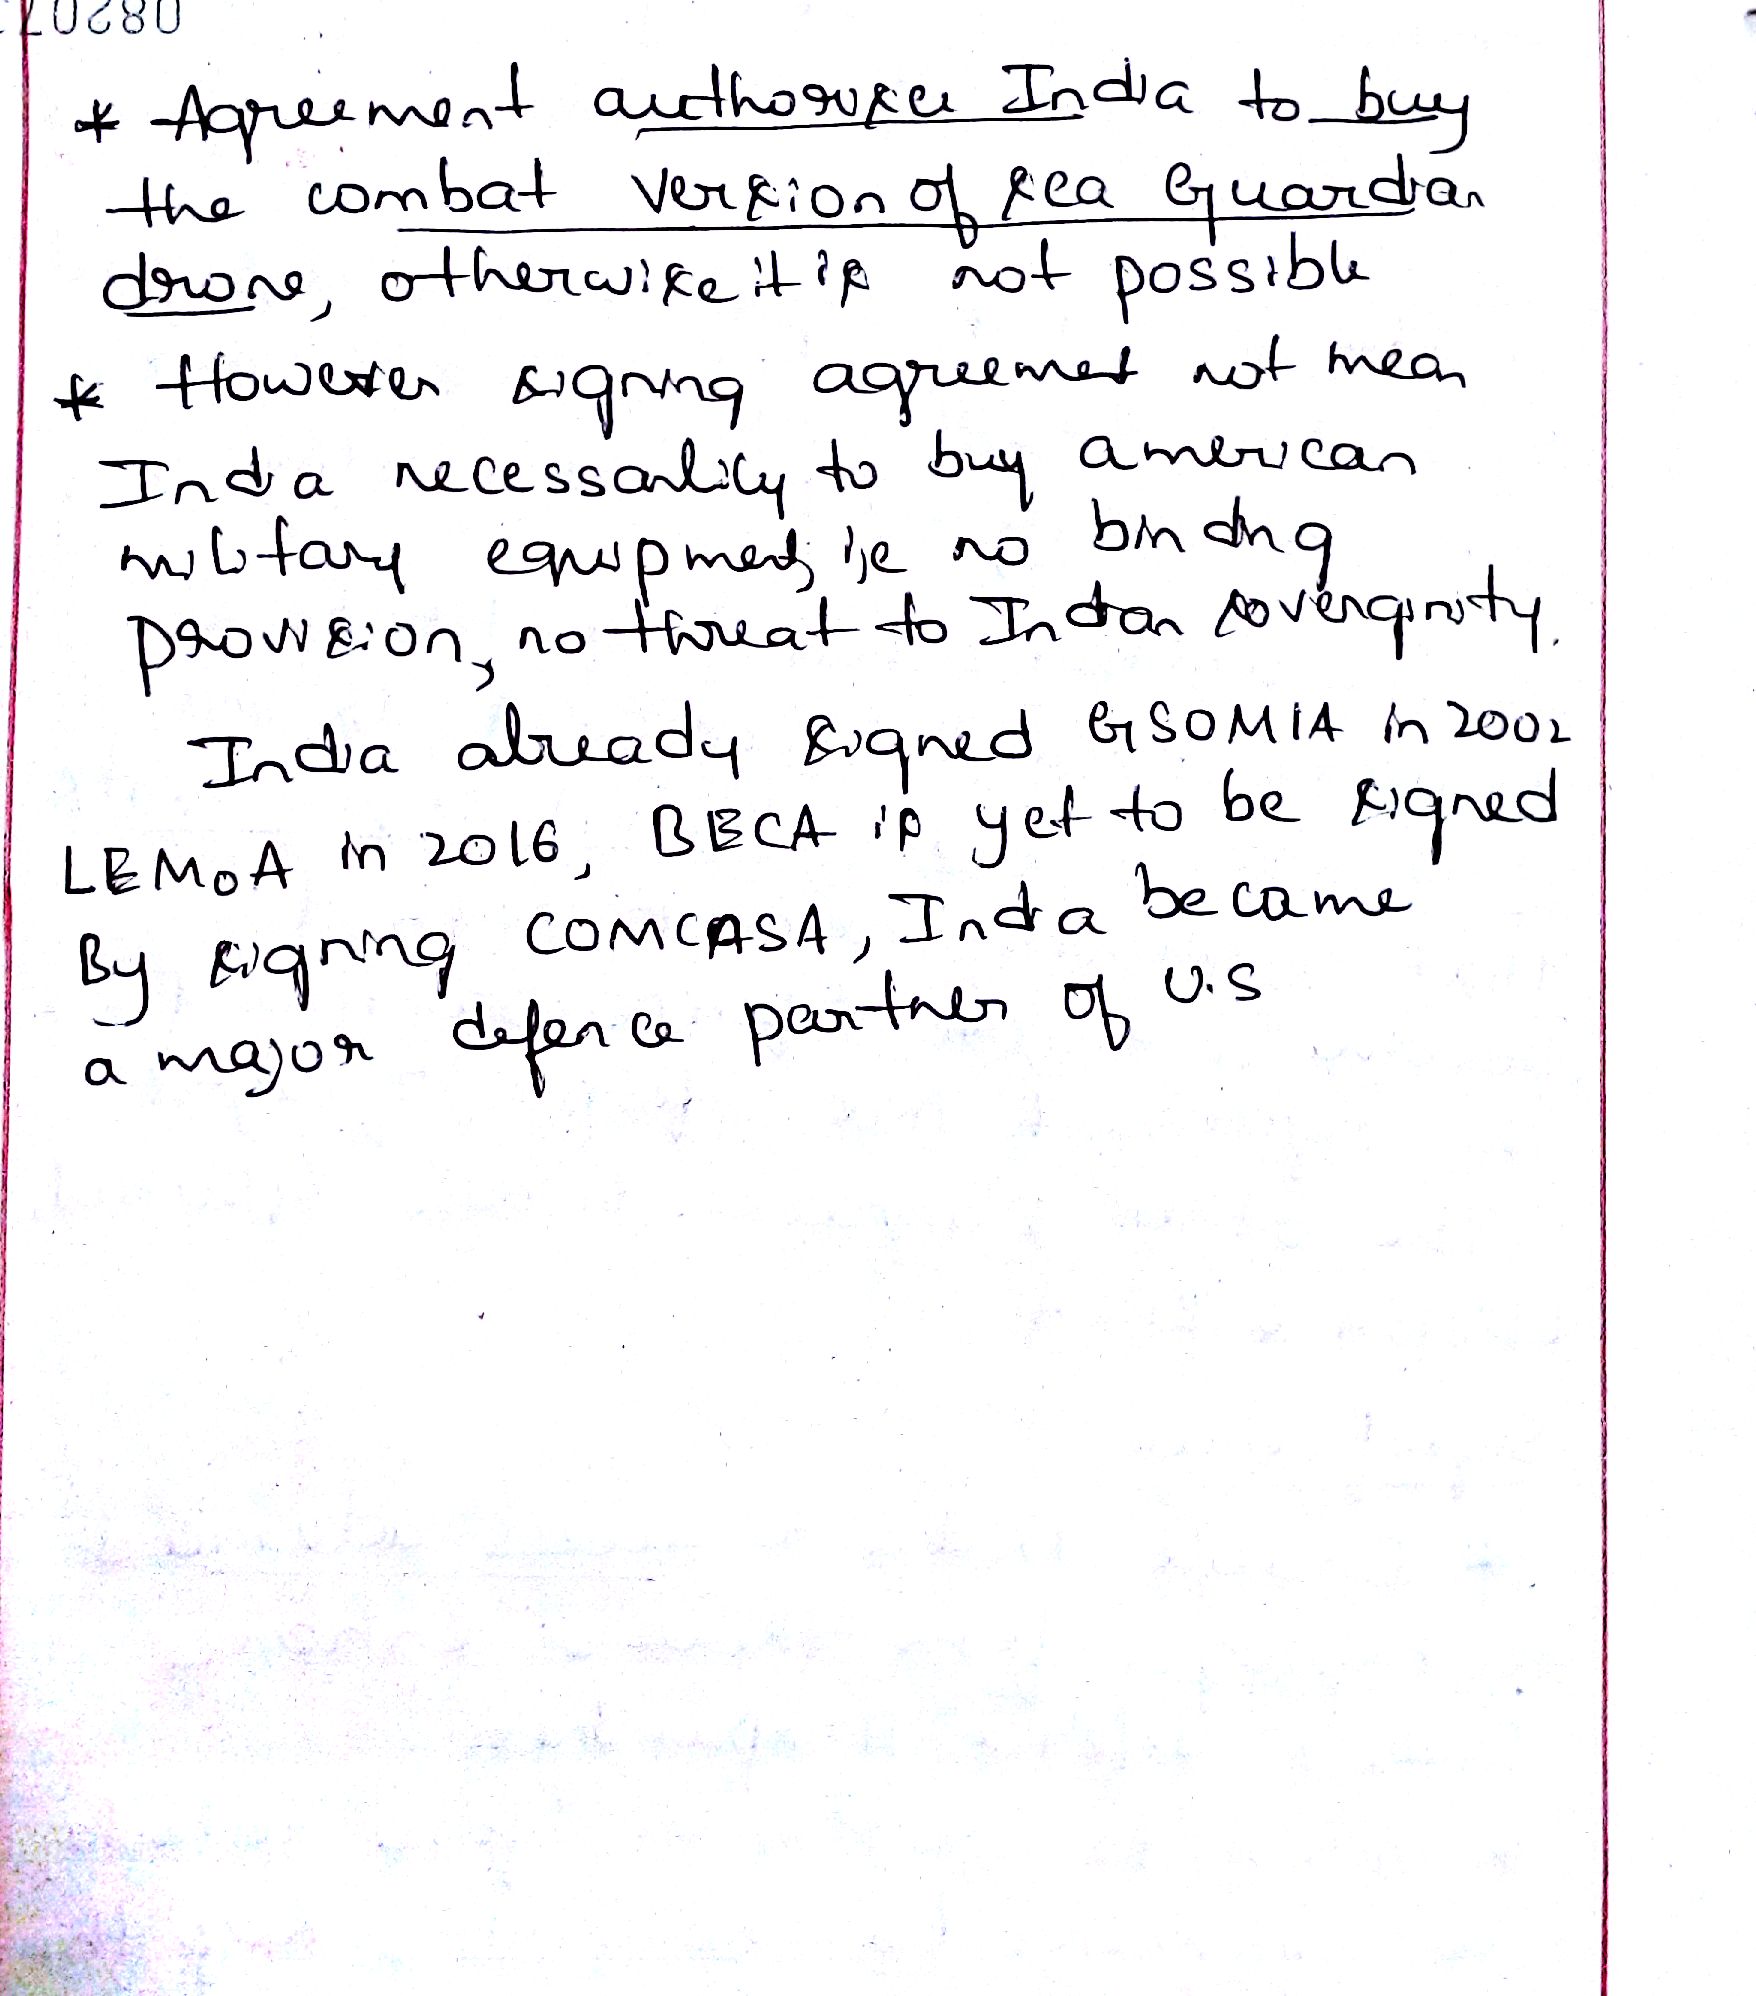 * Agreement authorizes India to buy
the combat version of sea Guardian
drone, otherwise it is not possible
* However signing agreement not mean
India necessarlily to buy american
military equipment, i.e no binding
provision, no threat to Indian soverginity.
India already signed GSOMIA in 2002
LEMOA in 2016, BECA is yet to be signed
By signing COMCASA, India became
a major defence partner of U.S